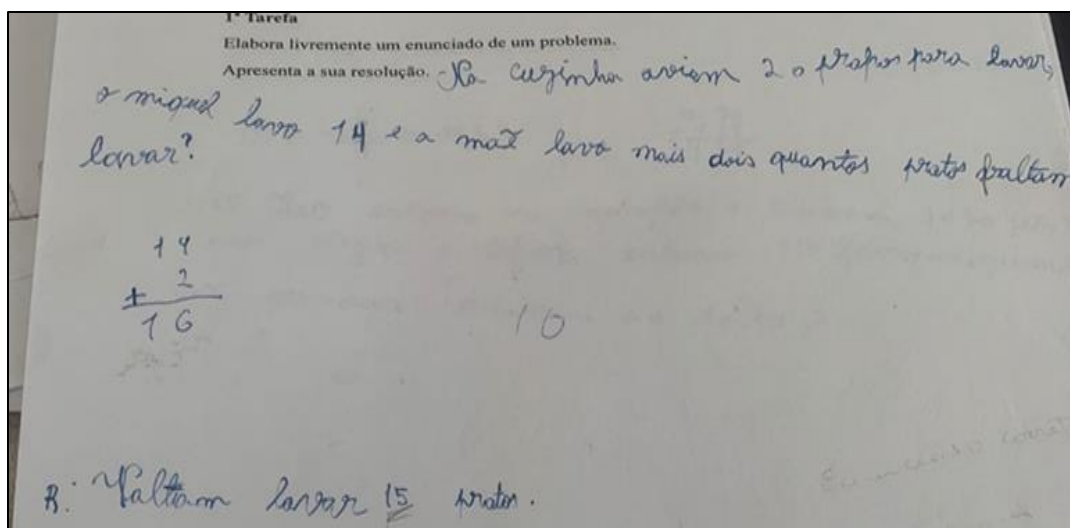 1ª Tarefa
Elabora livremente um enunciado de um problema.
Apresenta a sua resolução. Na cuzinha aviam 20 pratos para lavar,
o miguel lavo 14 e a maẽ lavo mais dois quantos pratos faltam
lavar?
14
+ 2
16
10
R: Faltam lavar 15 pratos.